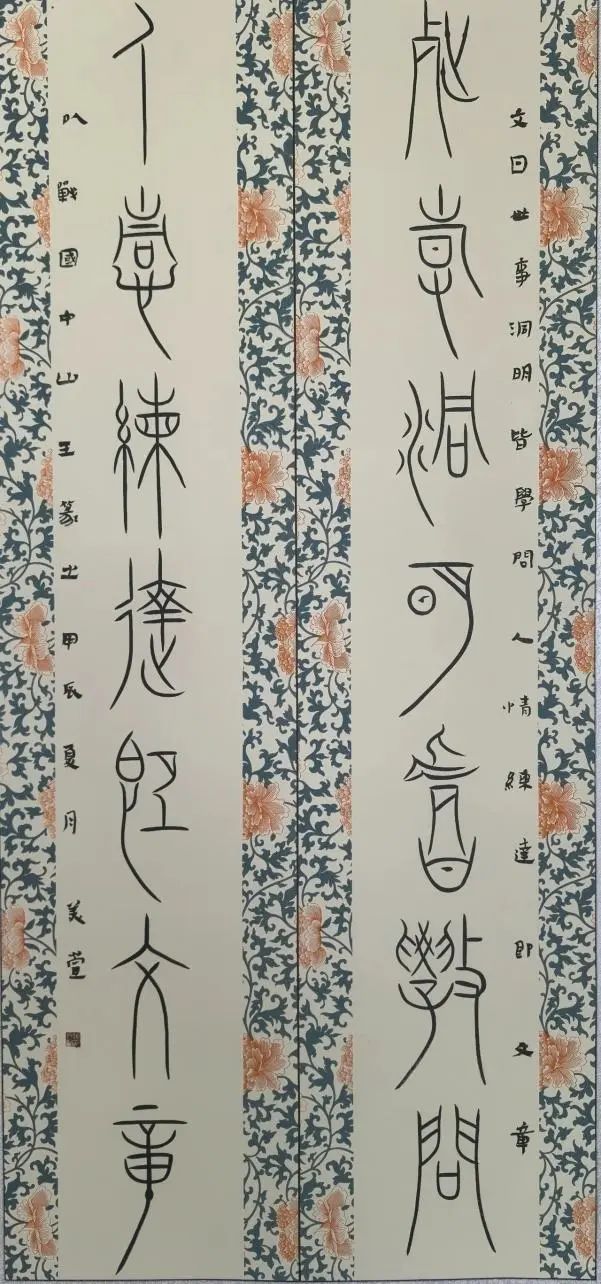 文曰世事洞明皆學問人情練達即文章
世事洞明皆學問
人情練達即文章
以戰國中山王篆甲辰夏月美萱